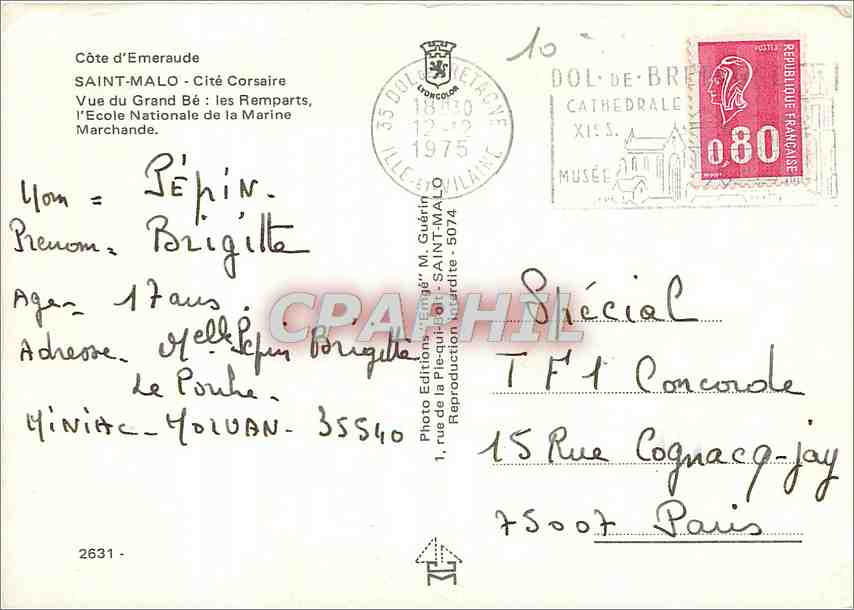 Côte d'Emeraude
SAINT-MALO - Cité Corsaire
Vue du Grand Bé : les Remparts,
l'Ecole Nationale de la Marine
Marchande.
Nom = PÉPIN.
Prenom = BRIGITTE
Age - 17 ans.
Adresse - Melle Pepin Brigitte
MINIAC - MORVAN - 35540
2631 -
LYONCOLOR
35 DOL DE BRETAGNE
18H30
12-12
1975
ILLE-ET-VILAINE
10
DOL-DE-BRE
CATHEDRALE
XIIIe S.
MUSÉE
POSTES
REPUBLIQUE FRANÇAISE
0,80
Photo Editions "Emgé" M. Guérin
1, rue de la Pie-qui-Boit - SAINT-MALO
Reproduction interdite - 5074
CPARHIL
Spécial
TF1 Concorde
15 Rue Cognacq-jay
75007 Paris